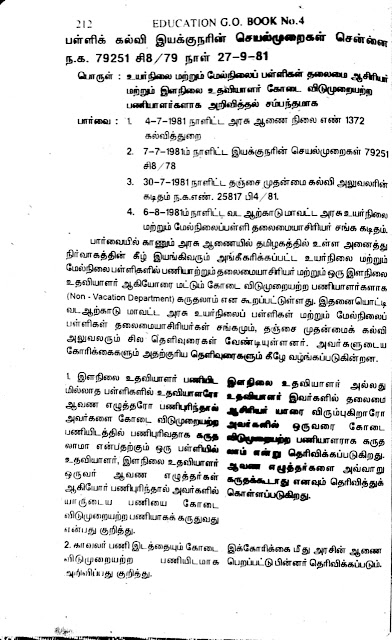 212 EDUCATION G.O. BOOK No.4
பள்ளிக் கல்வி இயக்குநரின் செயல்முறைகள் சென்னை
ந.க. 79251 சி8/79 நாள் 27-9-81
பொருள் : உயர்நிலை மற்றும் மேல்நிலைப் பள்ளிகள் தலைமை ஆசிரியர்
மற்றும் இளநிலை உதவியாளர் கோடை விடுமுறையற்ற
பணியாளர்களாக அறிவித்தல் சம்பந்தமாக
பார்வை : 1. 4-7-1981 நாளிட்ட அரசு ஆணை நிலை எண் 1372
கல்வித்துறை
2. 7-7-1981ம் நாளிட்ட இயக்குநரின் செயல்முறைகள் 79251
சி8/78
3. 30-7-1981 நாளிட்ட தஞ்சை முதன்மை கல்வி அலுவலரின்
கடிதம் ந.க.எண். 25817 பி4/81.
4. 6-8-1981ம் நாளிட்ட வட ஆற்காடு மாவட்ட அரசு உயர்நிலை
மற்றும் மேல்நிலைப்பள்ளி தலைமையாசிரியர் சங்க கடிதம்.
பார்வையில் காணும் அரசு ஆணையில் தமிழகத்தில் உள்ள அனைத்து
நிர்வாகத்தின் கீழ் இயங்கிவரும் அங்கீகரிக்கப்பட்ட உயர்நிலை மற்றும்
மேல்நிலை பள்ளிகளில் பணியாற்றும் தலைமையாசிரியர் மற்றும் ஒரு இளநிலை
உதவியாளர் ஆகியோரை மட்டும் கோடை விடுமுறையற்ற பணியாளர்களாக
(Non - Vacation Department) கருதலாம் என கூறப்பட்டுள்ளது. இதனையொட்டி
வடஆற்காடு மாவட்ட அரசு உயர்நிலைப் பள்ளிகள் மற்றும் மேல்நிலைப்
பள்ளிகள் தலைமையாசிரியர்கள் சங்கமும், தஞ்சை முதன்மைக் கல்வி
அலுவலரும் சில தெளிவுரைகள் வேண்டியுள்ளனர். அவர்களுடைய
கோரிக்கைகளும் அதற்குரிய தெளிவுரைகளும் கீழே வழங்கப்படுகின்றன.
1. இளநிலை உதவியாளர் பணியிட
மில்லாத பள்ளிகளில் உதவியாளரோ
ஆவண எழுத்தரோ பணிபுரிந்தால்
அவர்களை கோடை விடுமுறையற்ற
பணியிடத்தில் பணிபுரிவதாக கருத
லாமா என்பதற்கும் ஒரு பள்ளியில்
உதவியாளர், இளநிலை உதவியாளர்
ஒருவர் ஆவண எழுத்தர்கள்
ஆகியோர் பணிபுரிந்தால் அவர்களில்
யாருடைய பணியை கோடை
விடுமுறையற்ற பணியாகக் கருதுவது
என்பது குறித்து.
இளநிலை உதவியாளர் அல்லது
உதவியாளர் இவர்களில் தலைமை
ஆசிரியர் யாரை விரும்புகிறாரோ
அவர்களில் ஒருவரை கோடை
விடுமுறையற்ற பணியாளராக கருத
லாம் என்று தெரிவிக்கப்படுகிறது.
ஆவண எழுத்தர்களை அவ்வாறு
கருதக்கூடாது எனவும் தெரிவித்துக்
கொள்ளப்படுகிறது.
2. காவலர் பணி இடத்தையும் கோடை
விடுமுறையற்ற பணியிடமாக
அறிவிப்பது குறித்து.
இக்கோரிக்கை மீது அரசின் ஆணை
பெறப்பட்டு பின்னர் தெரிவிக்கப்படும்.